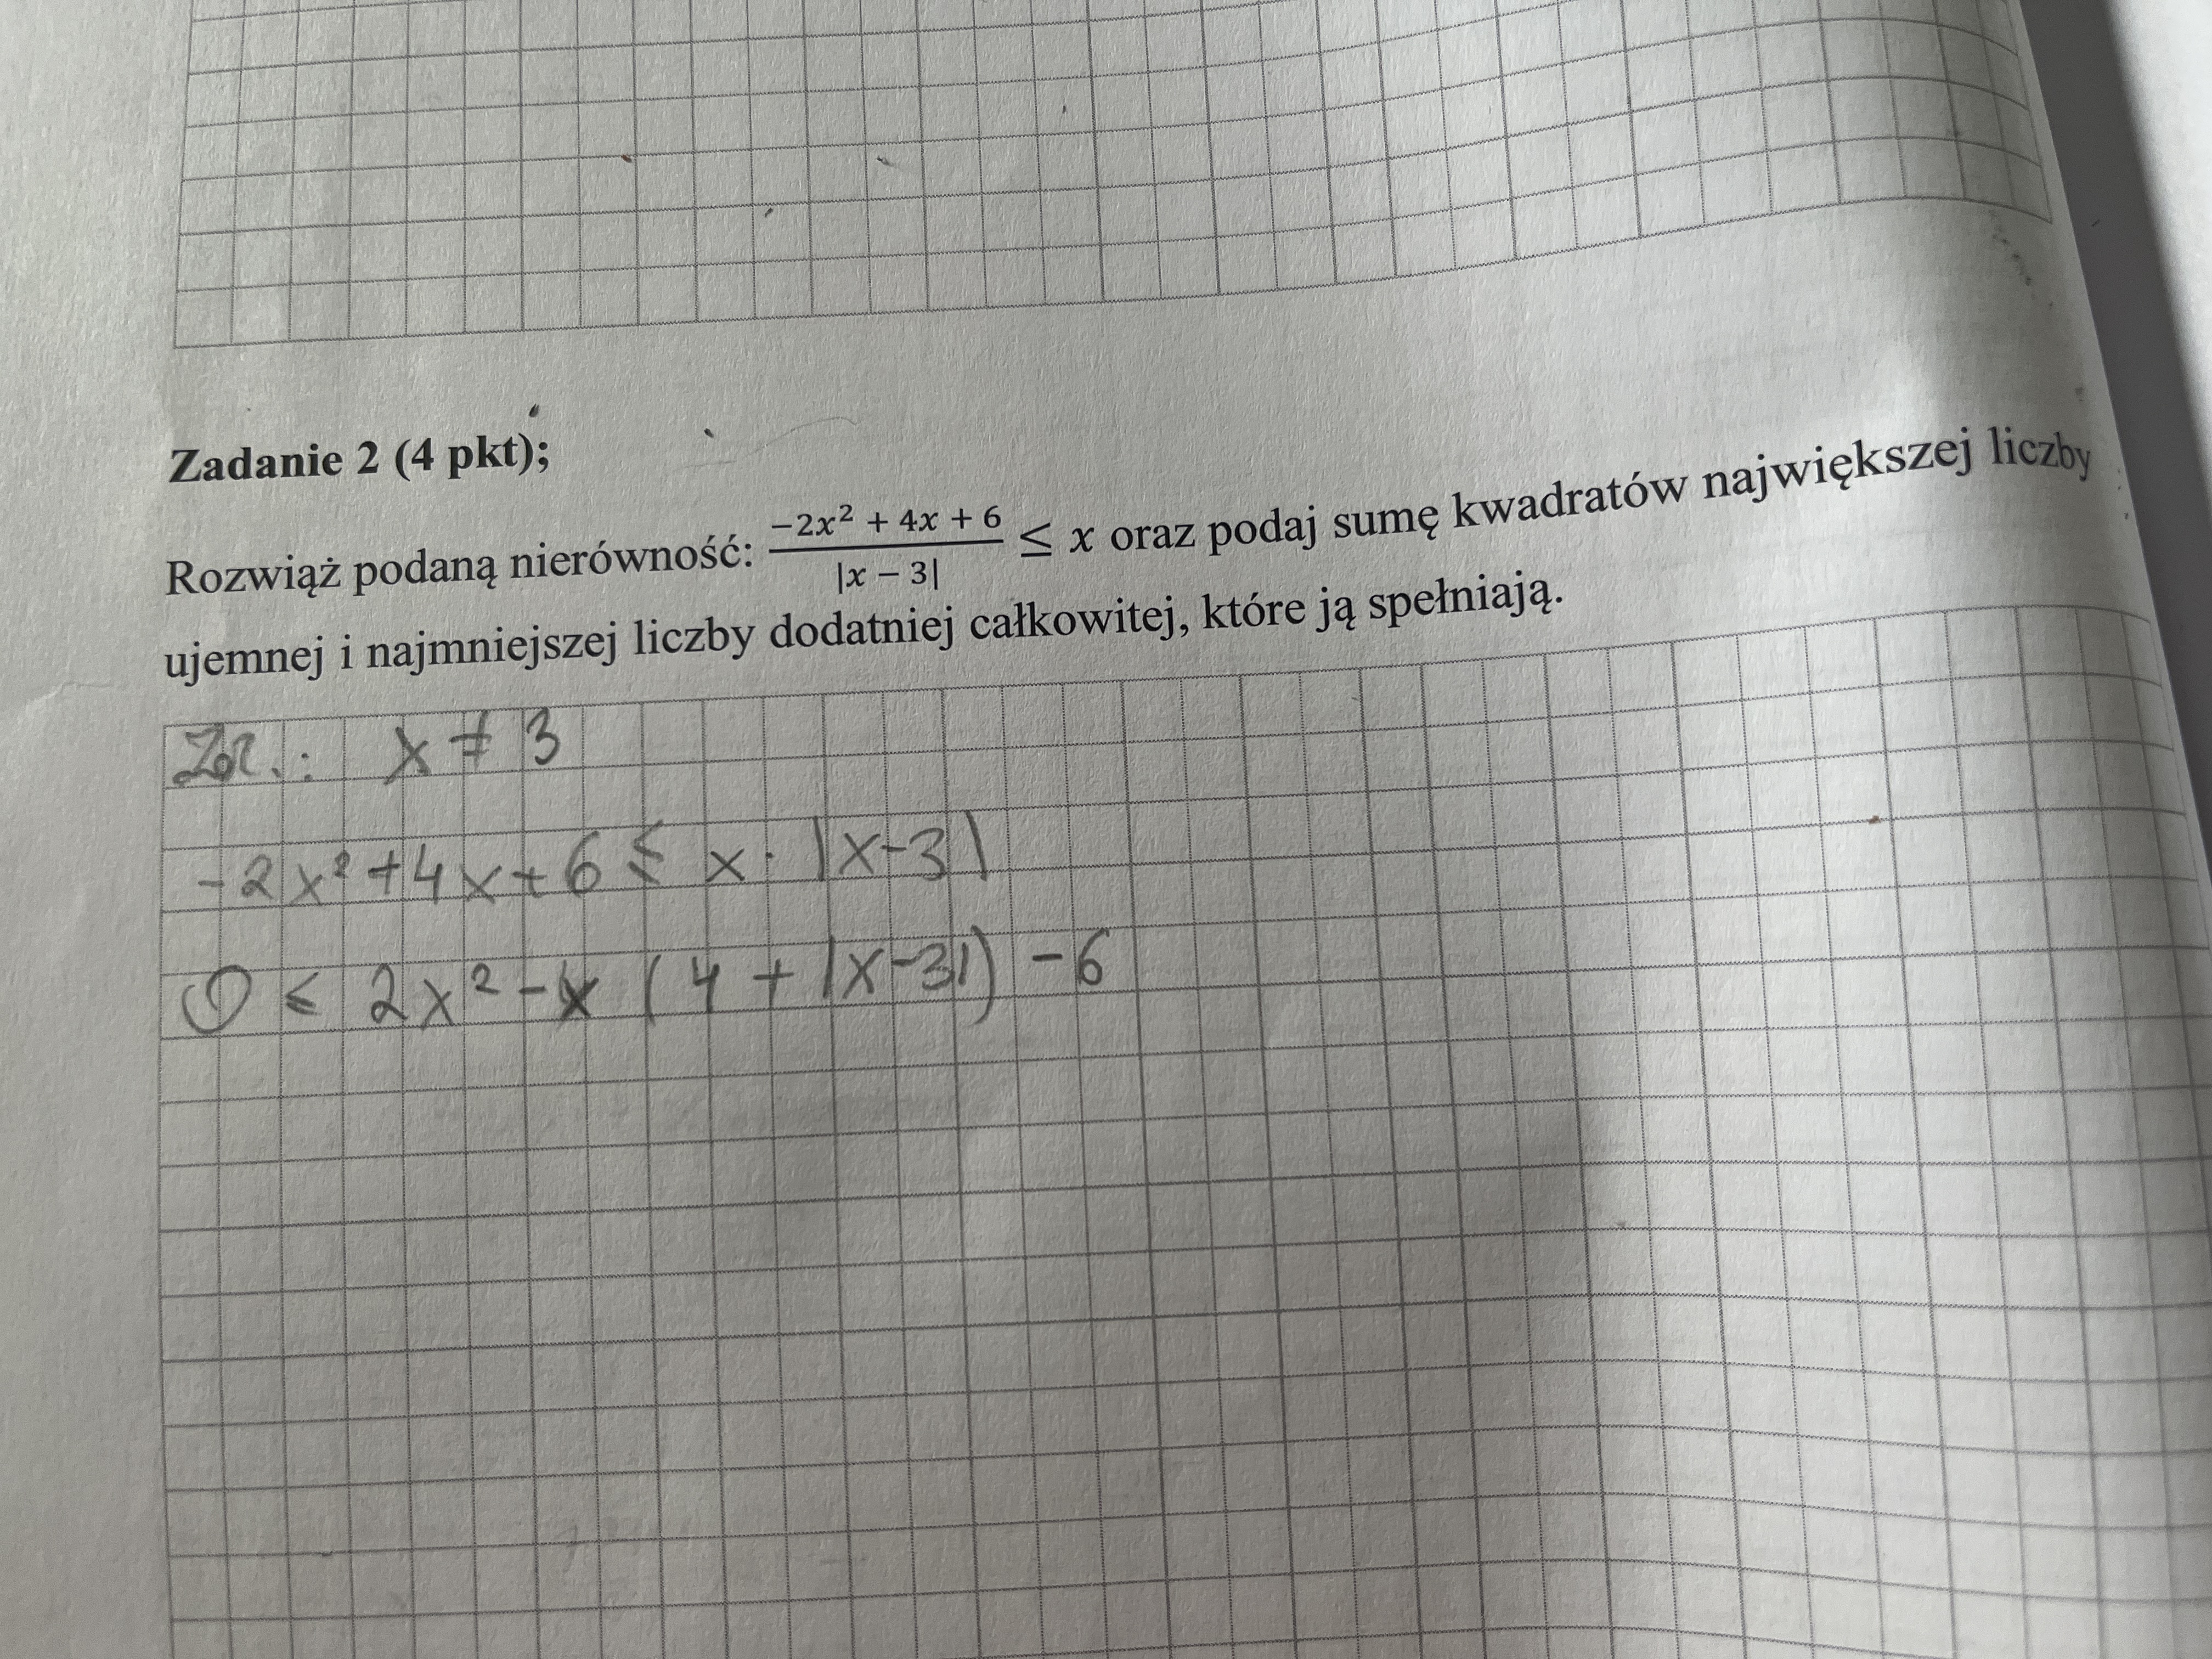 Zadanie 2 (4 pkt);
Rozwiąż podaną nierówność: \frac{-2x² + 4x + 6}{|x − 3|} ≤ x oraz podaj sumę kwadratów największej liczby
ujemnej i najmniejszej liczby dodatniej całkowitej, które ją spełniają.
Zał.: x ≠ 3
-2x² + 4x + 6 ≤ x · |x-3|
0 ≤ 2x² - x (4 + |x-3|) - 6